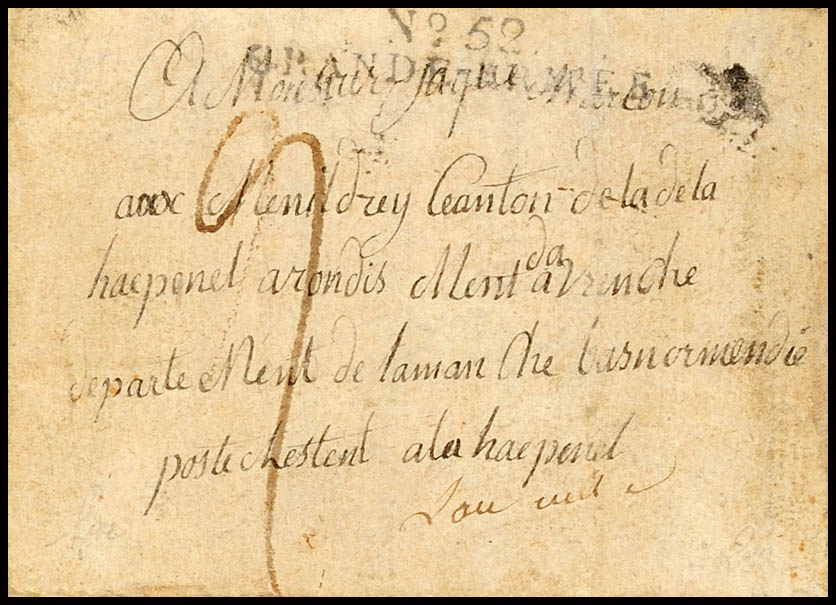 No 52
GRANDE ARMÉE
A Monsieur Jaque
aux Menildrey Ceanton de la de la
haepenel arondis Ment da avrenche
departe Ment de laman Che basnormendie
poste chestent ala haepenel